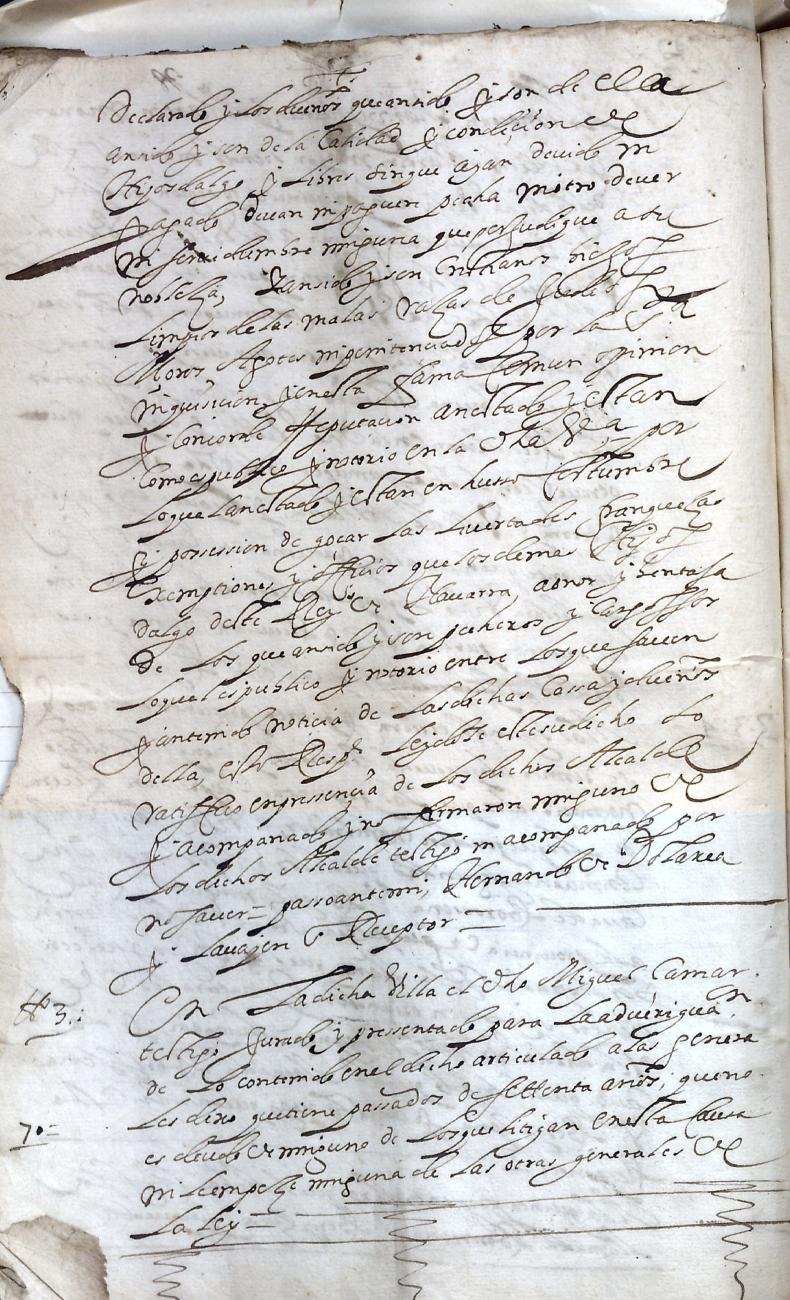 declarado y los dueños que an sido y son de ella
an sido y son de la Calidad y condicion de
Hijosdalgo y libres sin que ayan devido ni
pagado devan ni paguen pecha ni otro dever
ni servidumbre ninguna que perjudique a su
nobleza, y an sido y son Cristianos biejos
limpios de las malas razas de Judios
Moros Agotes ni penitenciados por la Sta
inquisicion, y en esta fama Comun opinion
y Concorde Reputacion an estado y estan
Como es publico y notorio en la dha Va por
lo que an estado y estan en husso Costumbre
y possession de goçar las livertades franquezas
Exemptiones y officios que los demas Hijos
dalgo deste Reyno de Navarra, a onor y bentaja
de los que an sido y son pecheros y
lo qual es publico y notorio entre los que saven
y an tenido noticia de las dichas Cassa y dueños
della, esto Respe leydole este su dicho lo
ratiffico en pressençia de los dichos Alcalde
y acompanado y no firmaron ninguno de
los dichos Alcalde testigo ni acompanado por
no saver = passo ante mi, Hernando de Bolarea
y Lavajen Receptor =
to 3.:
En La dicha Villa el dho Miguel Camar
testigo Jurado y pressentado para La aueriguaon
de lo contenido en el dicho articulado a las genera
les dixo que tiene passados de settenta años, que no
70 =
es deudo de ninguno de los que litigan en esta Causa
ni le empeçe ninguna de las otras generales de
La ley =